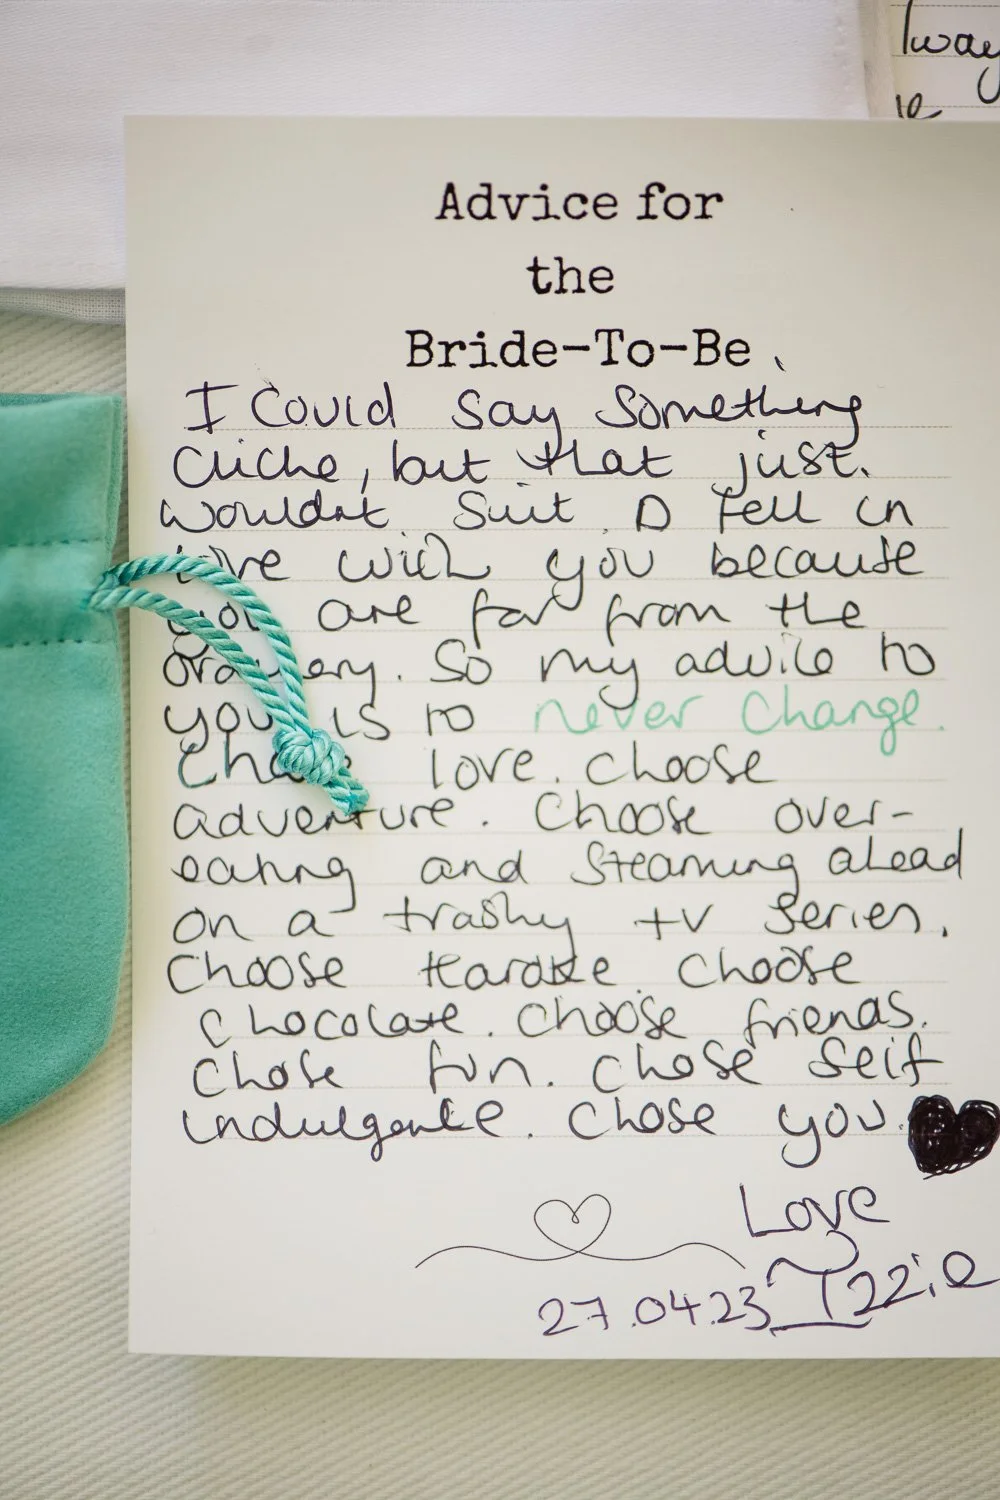 lway
Advice for
the
Bride-To-Be
I Could say Something
Cliche, but that just.
wouldnt suit. I fell in
love with you because
you are far from the
ordinary. So my advice to
you is to never change.
love. choose
adventure. Choose over-
eating and steaming ahead
on a trashy tv series.
Choose choose
chocolate. choose friends.
chose fun. chose self
indulgence. chose you.
Love
Izzie
27.04.23